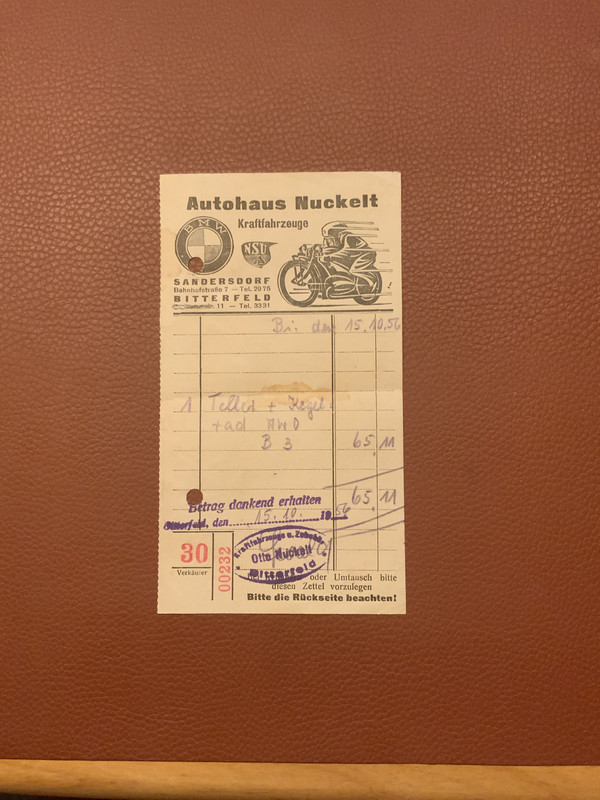 Autohaus Nuckelt
Kraftfahrzeuge
BMW
NSU
SANDERSDORF
Bahnhofstraße 7 — Tel. 2975
BITTERFELD
11 — Tel. 3331
Bi. den 15.10.56
1 Teller + Kegel
rad AWO
B 3 65,11
65,11
Betrag dankend erhalten
Bitterfeld, den 15.10. 1956
30
Verkäufer
00232
Kraftfahrzeuge u. Zubehör
Otto Nuckelt
Bitterfeld
oder Umtausch bitte
diesen Zettel vorzulegen
Bitte die Rückseite beachten!